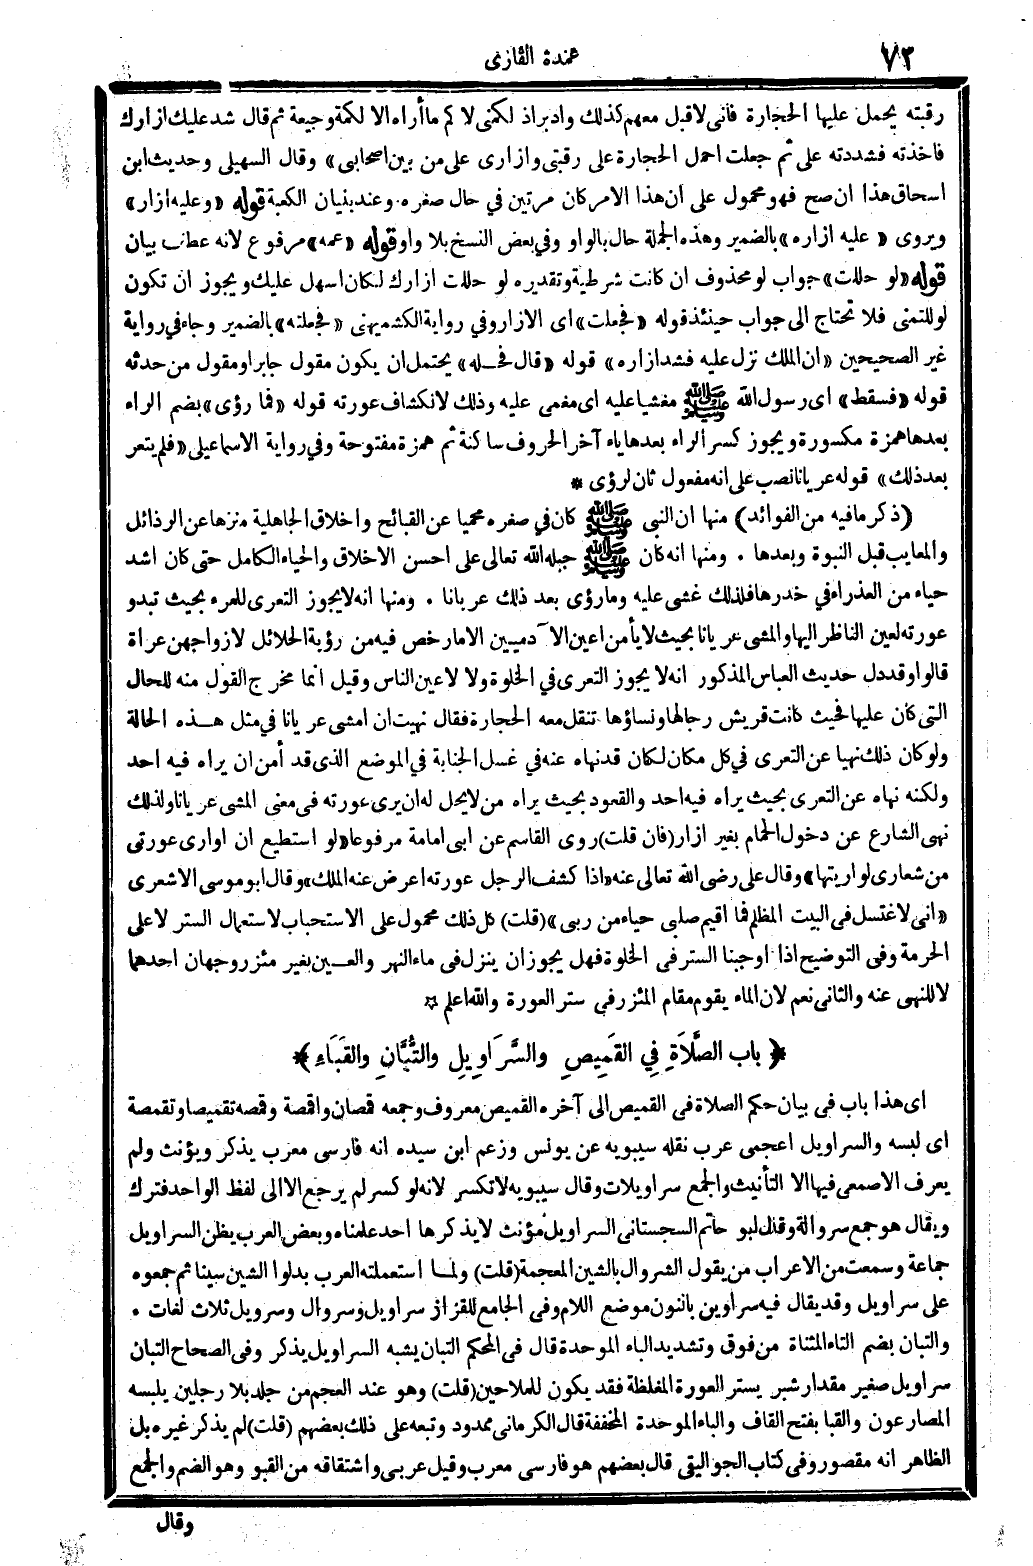 ٧٢
عمدة القارى
رقبته يحمل عليها الحجارة فانى لاقبل معهم كذلك وادبراذ لكمنى لاكم ماأراه الا لكمة وجيعة ثم قال شد عليك ازارك
فاخذته فشددته على ثم جعلت احمل الحجارة على رقبتى وازارى على من بين اصحابى» وقال السهيلى وحديث ابن
اسحاق هذا ان صح فهو محمول على ان هذا الامر كان مرتين في حال صغره وعند بنيان الكعبة قوله «وعليه ازار»
ويروى «عليه ازاره» بالضمير وهذه الجملة حال بالواو وفي بعض النسخ بلا واو قوله «عمه» مرفوع لانه عطف بيان
قوله «لو حللت» جواب لو محذوف ان كانت شرطية وتقديره لو حللت ازارك لكان اسهل عليك ويجوز ان تكون
لو للتمنى فلا تحتاج الى جواب حينئذ قوله «فجعلت» اى الازار وفي رواية الكشميهنى «فجعلته» بالضمير وجاء في رواية
غير الصحيحين «ان الملك نزل عليه فشد ازاره» قوله «قال فحله» يحتمل ان يكون مقول جابر او مقول من حدثه
قوله «فسقط» اى رسول الله ﷺ مغشيا عليه اى مغمى عليه وذلك لانكشاف عورته قوله «فما رؤى» بضم الراء
بعدها همزة مكسورة ويجوز كسر الراء بعدها ياء آخر الحروف ساكنة ثم همزة مفتوحة وفي رواية الاسماعيلى «فلم يتعر
بعد ذلك» قوله عريانا نصب على انه مفعول ثان لرؤى *
(ذكر ما فيه من الفوائد) منها ان النبى ﷺ كان في صغره محميا عن القبائح واخلاق الجاهلية منزها عن الرذائل
والمعايب قبل النبوة وبعدها . ومنها انه كان ﷺ جبله الله تعالى على احسن الاخلاق والحياء الكامل حتى كان اشد
حياء من العذراء في خدرها فلذلك غشى عليه وما رؤى بعد ذلك عريانا . ومنها انه لا يجوز التعرى للمرء بحيث تبدو
عورته لعين الناظر اليها والمشى عريانا بحيث لا يأمن اعين الآدميين الا ما رخص فيه من رؤية الحلائل لازواجهن عراة
قالوا وقد دل حديث العباس المذكور انه لا يجوز التعرى في الخلوة ولا لاعين الناس وقيل انما مخرج القول منه للحال
التى كان عليها فحيث كانت قريش رجالها ونساؤها تنقل معه الحجارة فقال نهيت ان امشى عريانا في مثل هذه الحالة
ولو كان ذلك نهيا عن التعرى في كل مكان لكان قد نهاه عنه في غسل الجنابة في الموضع الذى قد أمن ان يراه فيه احد
ولكنه نهاه عن التعرى بحيث يراه فيه احد والقعود بحيث يراه من لا يحل له ان يرى عورته فى معنى المشى عريانا ولذلك
نهى الشارع عن دخول الحمام بغير ازار (فان قلت) روى القاسم عن ابى امامة مرفوعا «لو استطيع ان اوارى عورتى
من شعارى لواريتها» وقال على رضى الله تعالى عنه «اذا كشف الرجل عورته اعرض عنه الملك» وقال ابو موسى الاشعرى
«انى لاغتسل فى البيت المظلم فما اقيم صلبى حياء من ربى» (قلت) كل ذلك محمول على الاستحباب لاستعمال الستر لا على
الحرمة وفى التوضيح اذا اوجبنا الستر فى الخلوة فهل يجوز ان ينزل فى ماء النهر والعين بغير مئزر وجهان احدهما
لا للنهى عنه والثانى نعم لان الماء يقوم مقام المئزر فى ستر العورة والله اعلم ☆
﴿ باب الصَّلَاةِ فِي القَمِيصِ والسَّرَاوِيلِ والتُّبَّانِ والقَبَاءِ ﴾
اى هذا باب فى بيان حكم الصلاة فى القميص الى آخره القميص معروف وجمعه قمصان واقمصة وقمصه تقميصا وتقمصة
اى لبسه والسراويل اعجمى عرب نقله سيبويه عن يونس وزعم ابن سيده انه فارسى معرب يذكر ويؤنث ولم
يعرف الاصمعى فيها الا التأنيث والجمع سراويلات وقال سيبويه لا تكسر لانه لو كسر لم يرجع الا الى لفظ الواحد فترك
ويقال هو جمع سروالة وقال ابو حاتم السجستانى السراويل مؤنث لا يذكرها احد علمناه وبعض العرب يظن السراويل
جماعة وسمعت من الاعراب من يقول الشروال بالشين المعجمة (قلت) ولما استعملته العرب بدلوا الشين سينا ثم جمعوه
على سراويل وقد يقال فيه سراوين بالنون موضع اللام وفى الجامع للقزاز سراويل وسروال وسرويل ثلاث لغات .
والتبان بضم التاء المثناة من فوق وتشديد الباء الموحدة قال فى المحكم التبان يشبه السراويل يذكر وفى الصحاح التبان
سراويل صغير مقدار شبر يستر العورة المغلظة فقد يكون للملاحين (قلت) وهو عند العجم من جلد بلا رجلين يلبسه
المصارعون والقبا بفتح القاف والباء الموحدة المخففة قال الكرمانى ممدود وتبعه على ذلك بعضهم (قلت) لم يذكر غيره بل
الظاهر انه مقصور وفى كتاب الجواليقى قال بعضهم هو فارسى معرب وقيل عربى واشتقاقه من القبو وهو الضم والجمع
وقال